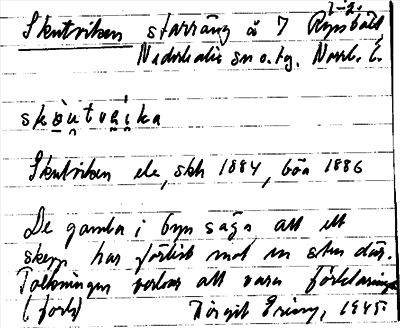 1-2.
Skutviken starräng å 7 Rynbäck,
Nederkalix sn o. tg. Norrb. l.
skùtvi̯ka
Skutviken ele, skh 1884, böa 1886
De gamla i byn säga att ett
skepp har förlist mot en sten där.
Tolkningen verkar att vara förklaring
(forts) Birgit Eriny, 1945.